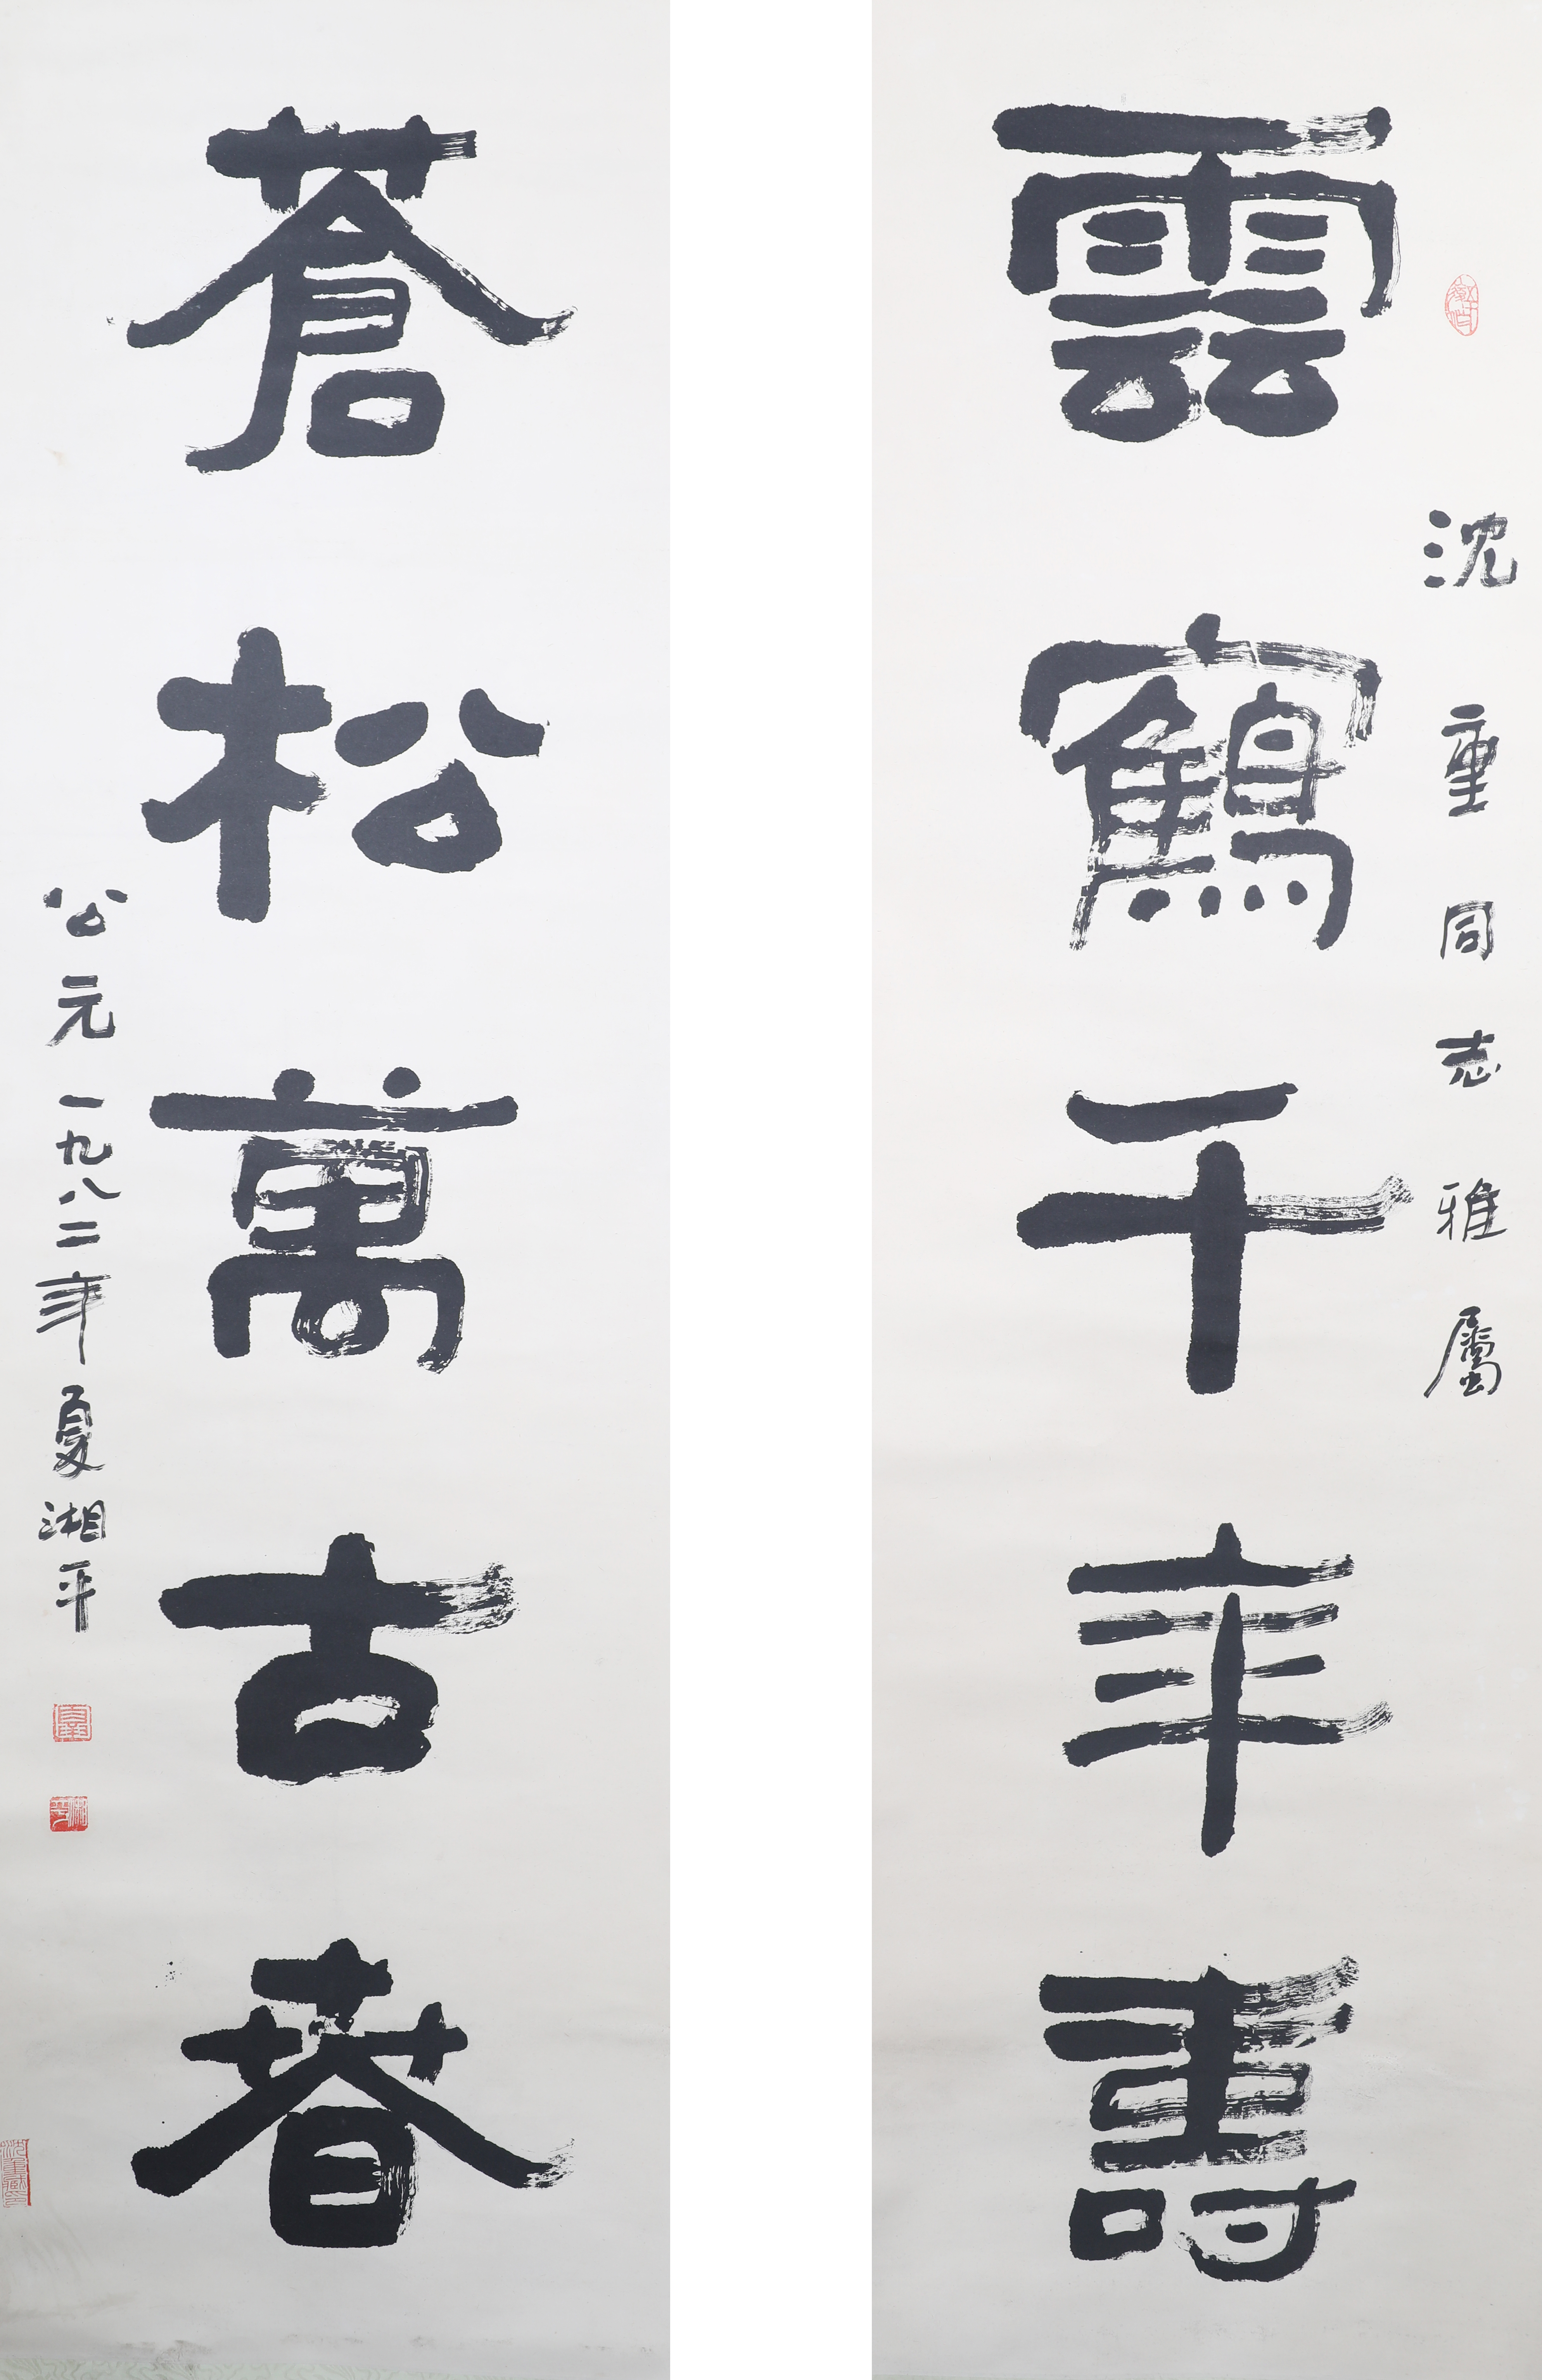 沈重同志雅屬
雲鶴千年壽
蒼松萬古春
公元一九八二年夏湘平